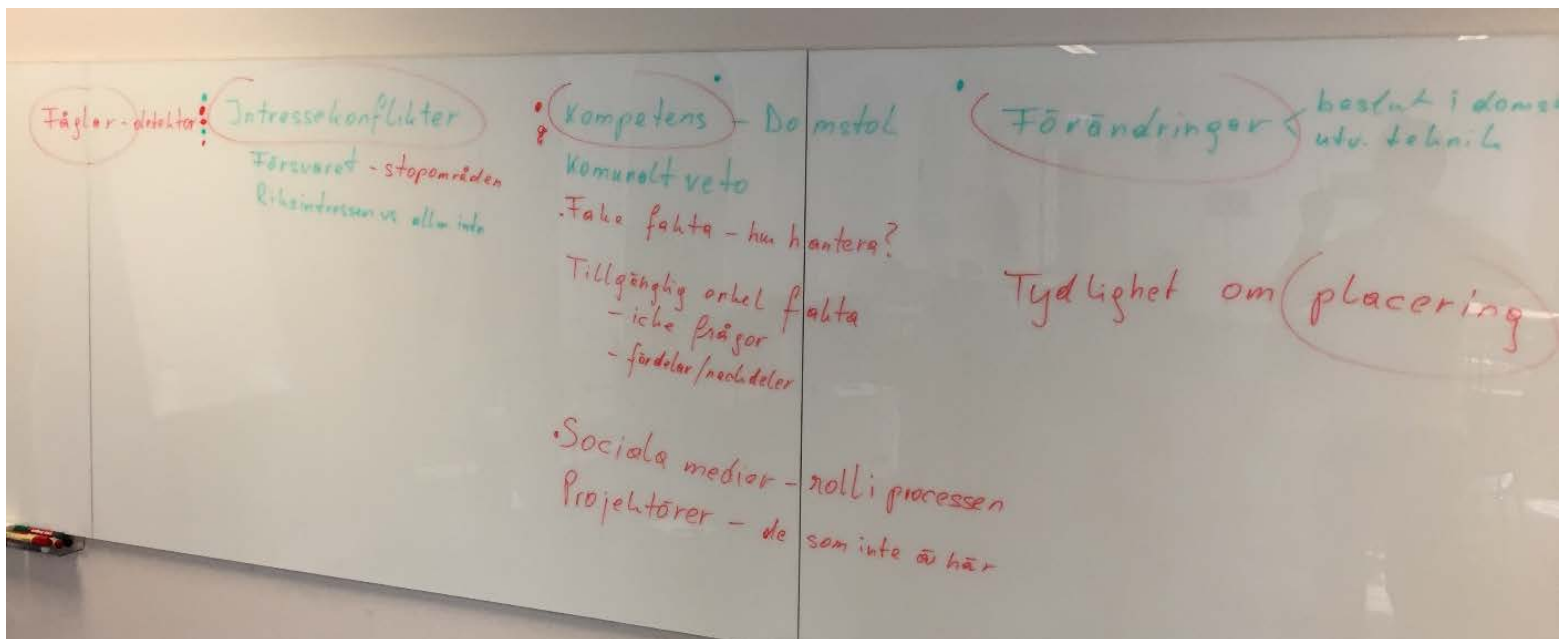 Fåglar - detektor
Intressekonflikter
Försvaret - stopområden
Riksintressen vs allm intr
Kompetens - Domstol
Komunalt veto
. Fake fakta - hur hantera?
Tillgänglig enkel fakta
- icke frågor
- fördelar/nackdeler
. Sociala medier - roll i processen
Projektörer - de som inte är här
Förändringar < beslut i domst
utv. teknik
Tydlighet om placering